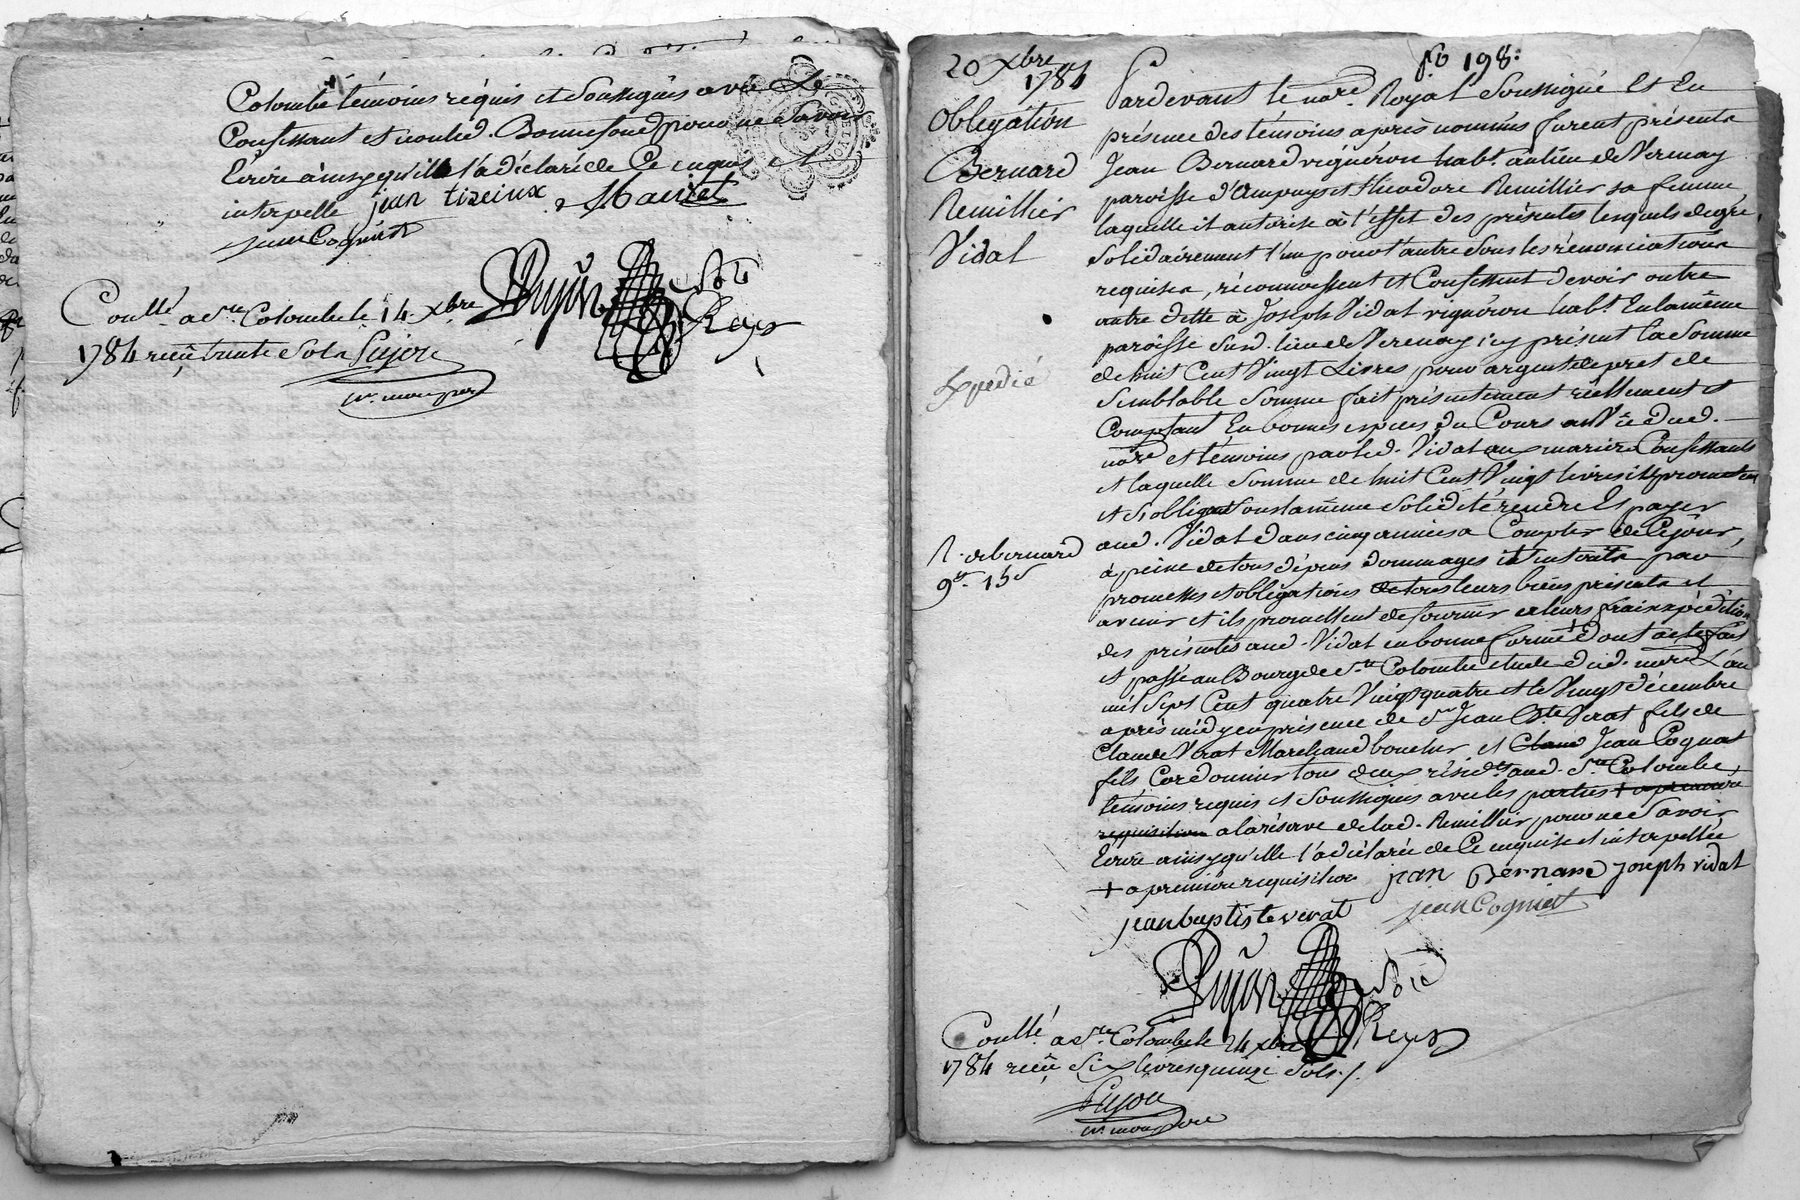 Colombe témoins réquis et Soussignés avec Le
Confessant et non led. Bonnefond pour ne Savoir
Ecrire ainsy qu'il l'a déclaré de Ce enquis et
interpellé jean tixeiux Mantet
jean Cogniet
Pujon nore Roy
Conllé a Ste Colombe le 14 xbre
1784 reçu trente Sols Pujon
pr. mon pere
20 xbre
1784
Obligation
Bernard
Remillier
Vidal
Expedié
R. de bernard
9# 15s
fo 198:
Pardevant le nore. Royal Soussigné Et En
présence des témoins après nommés furent présents
Jean Bernard vigneron habt. au lieu de Verenay
paroisse d'Ampuys et Theodore Remillier sa femme
laquelle il autorise à l'effet des présentes lesquels de gré,
Solidairement l'un pour l'autre Sous les rénonciations
requises, réconnoissent et Confessent devoir outre
autre dette à Joseph Vidal vigneron habt. En la même
paroisse Susd. lieu de Verenay icy présent la Somme
de huit Cent Vingt Livres pour argent de pret de
Semblable Somme fait présentement réellement et
Comptant En bonnes espèces du Cours au Vû dud.
nore et témoins par led. Vidal aux mariés Confessants
et laquelle Somme de huit Cent Vingt livres ils promettent
et S'obligent Sous la même Solidité rendre Et payer
aud. Vidal dans cinq années a Compter de Ce jour,
à peine de tous dépens dommages et interets par
promesses et obligations de tous leurs biens présents et
avenir et ils promettent de fournir a leurs frais expédition
des présentes aud. Vidal en bonne forme dont acte fait
et passé au Bourg de Ste Colombe etude dud. nore L'an
mil Sept Cent quatre Vingt quatre et le Vingt décembre
après midy en présence de Sr Jean Bte Verat fils de
Claude Verat Marchand boucher et Claude Jean Cognat
fils Cordonnier tous deux résidts aud. Ste Colombe,
témoins requis et Soussignés avec les parties + a premiere
requisition a la réserve de lad. Remillier pour ne Savoir
Ecrire ainsy qu'elle l'a déclarée de Ce enquise et interpellée
+ a premiere requisition jean Bernard joseph vidal
jean baptiste verat jean Cogniet
Pujon nore Roy
Conllé a Ste Colombe le 24 xbre
1784 reçu Six livres quinze Sols ./.
Pujon
pr. mon pere